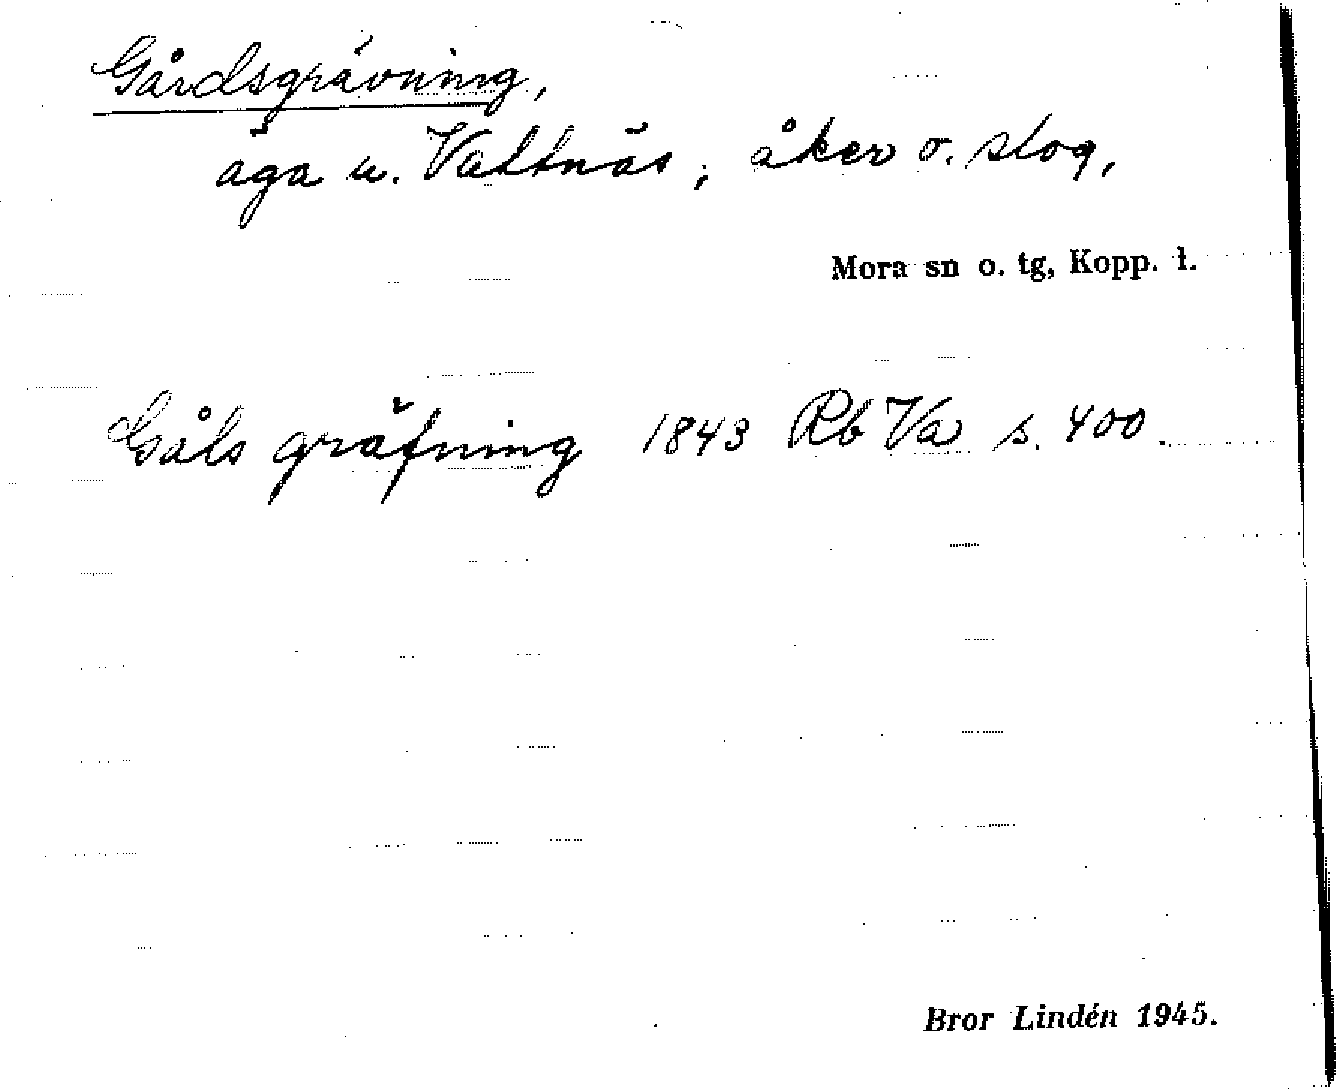 Gårdsgrävning,
äga u. Vattnäs; åker o. slog,
Mora sn o. tg, Kopp. l.
Gåls gräfning 1843 Rb Va s. 400.
Bror Lindén 1945.